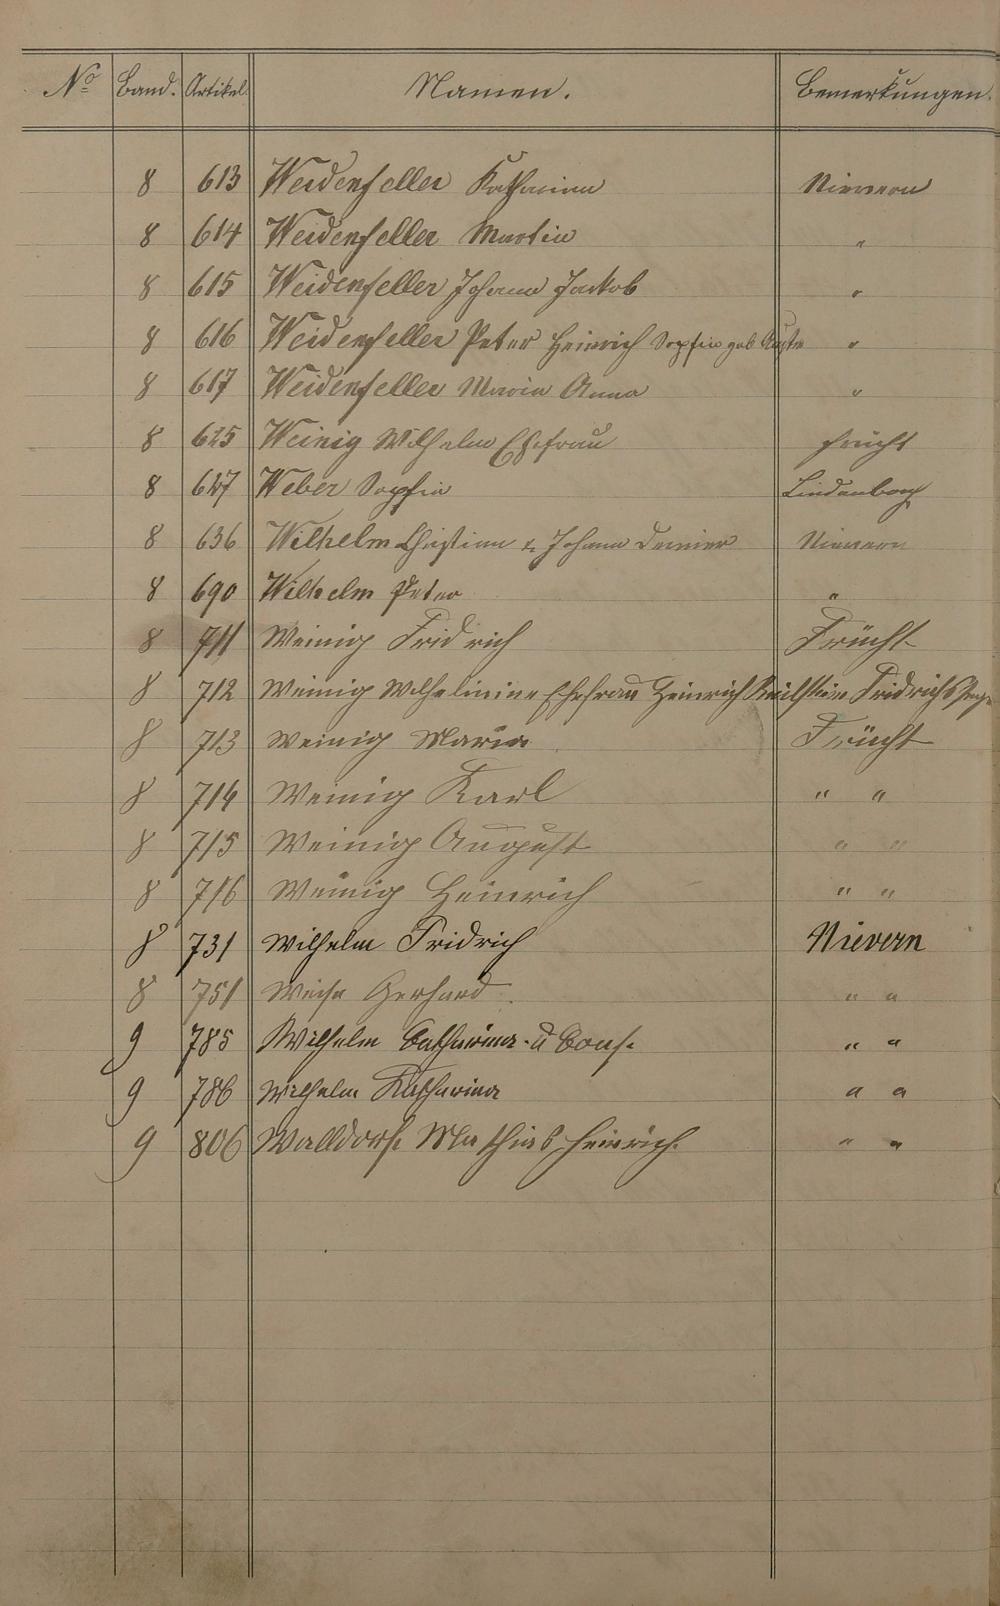 No Band. Artikel. Namen. Bemerkungen.
8 613 Weidenfeller Katharina Nievern
8 614 Weidenfeller Martin "
8 615 Weidenfeller Johann Jackob "
8 616 Weidenfeller Peter Heinrich Sophia geb "
8 617 Weidenfeller Maria Anna "
8 625 Weinig Wilhelm Ehefrau Frücht
8 627 Weber Sophia Lindenbach
8 636 Wilhelm Christian & Johann Nievern
8 690 Wilhelm Peter "
8 711 Weinig Fridrich Frücht
8 712 Weinig Wilhelmine Ehefrau Heinrich Fridrichs
8 713 Weinig Maria Frücht
8 714 Weinig Karl " "
8 715 Weinig August " "
8 716 Weinig Heinrich " "
8 731 Wilhelm Fridrich Nievern
8 751 Gerhard " "
9 785 Wilhelm Catharina u Cons. " "
9 786 Wilhelm Katharina " "
9 806 Walldorf Mathias Heinrich. " "